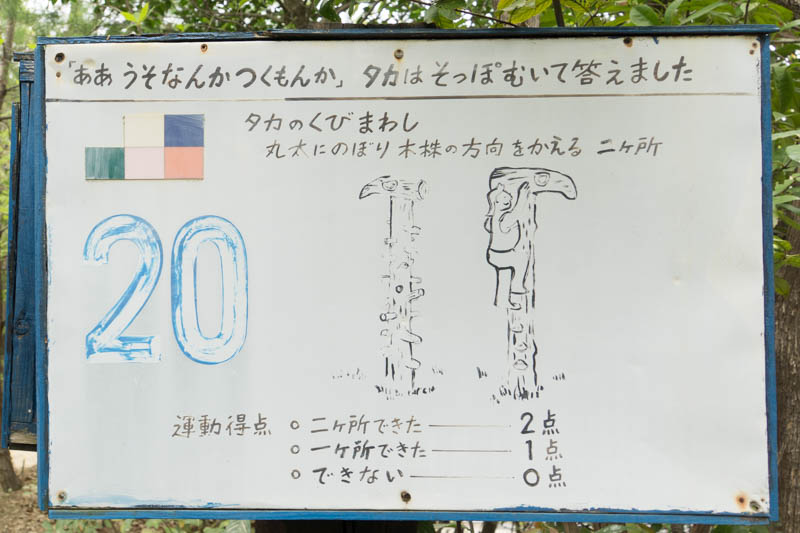 「ああ うそなんかつくもんか」 タカはそっぽむいて答えました
タカのくびまわし
丸太にのぼり 木株の方向をかえる 二ヶ所
20
運動得点 ○ 二ヶ所できた ―― 2点
○ 一ヶ所できた ―― 1点
○ できない ―― 0点